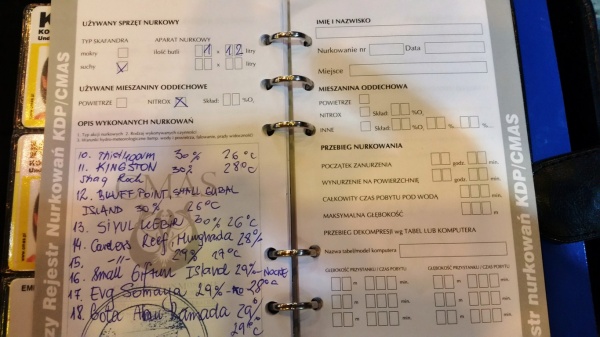 UŻYWANY SPRZĘT NURKOWY
TYP SKAFANDRA
APARAT NURKOWY
mokry
ilość butli 1 x 12 litry
suchy X
x litry
UŻYWANE MIESZANINY ODDECHOWE
POWIETRZE NITROX X Skład: %O₂
OPIS WYKONANYCH NURKOWAŃ
10. Thistlegorm 30% 26°C
11. KINGSTON 30% 28°C
Shag Rock
12. BLUFF POINT, SMALL GUBAL
ISLAND 30% 26°C
13. SIYUL KEBIR 30% 26°C
14. Carless Reef, Hurghada 28%
15. -//- 29% 19°C
16. Small Giftun Island 29% - NOCNE
17. Erg Somaya 29% 28°C
18. Gota Abu Ramada 29%
29°C
Rejestr Nurkowań KDP/CMAS
IMIĘ I NAZWISKO
Nurkowanie nr Data
Miejsce
MIESZANINA ODDECHOWA
POWIETRZE
NITROX Skład: %O₂
INNE %O₂ %
PRZEBIEG NURKOWANIA
POCZĄTEK ZANURZENIA godz. min.
WYNURZENIE NA POWIERZCHNIĘ godz. min.
CAŁKOWITY CZAS POBYTU POD WODĄ min.
MAKSYMALNA GŁĘBOKOŚĆ m
PRZEBIEG DEKOMPRESJI wg TABEL LUB KOMPUTERA
Nazwa tabel/model komputera
GŁĘBOKOŚĆ PRZYSTANKU / CZAS POBYTU GŁĘBOKOŚĆ PRZYSTANKU / CZAS POBYTU
m min. m min.
m min. m min.
m min. m min.
Rejestr nurkowań KDP/CMAS